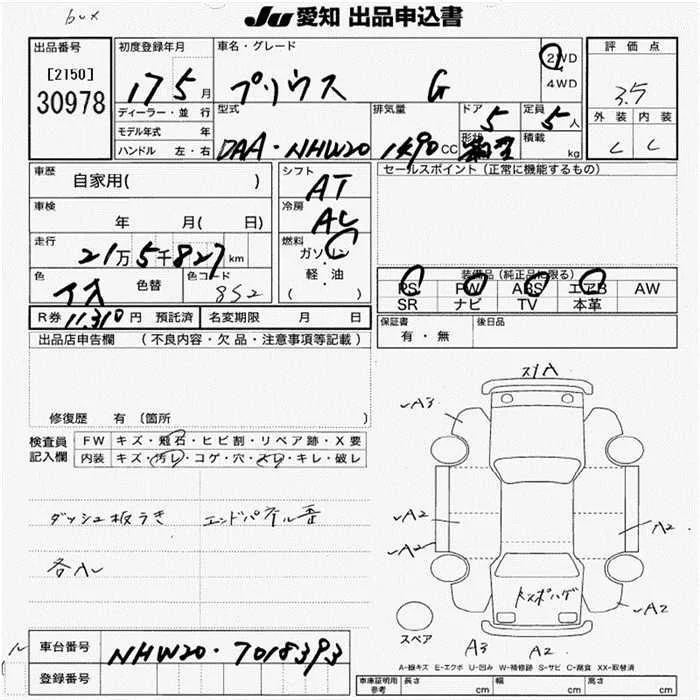 bux
JU 愛知 出品申込書
出品番号
[2150]
30978
初度登録年月
17 5 月
ディーラー・並 行
モデル年式 年
ハンドル 左・右
車名・グレード
プリウス G
2WD
4WD
型式
DAA・NHW20
排気量
1490 CC
ドア
5
形状
定員
5 人
積載
kg
評 価 点
3.5
外 装 内 装
C C
車歴
自家用( )
車検
年 月( 日)
走行
21万5千827 km
色
色替
色コード
852
シフト
AT
冷房
AC
燃料
ガソリン
・
軽 ・ 油
( )
R券 11,310 円 預託済
名変期限 月 日
セールスポイント (正常に機能するもの)
装備品 (純正品に限る)
PS PW ABS エアB AW
SR ナビ TV 本革
保証書
有 ・ 無
後日品
出品店申告欄 (不良内容・欠品・注意事項等記載)
修復歴 有 〔箇所 〕
検査員
記入欄
FW キズ・飛石・ヒビ割・リペア跡・X要
内装 キズ・汚レ・コゲ・穴・スレ・キレ・破レ
ダッシュ板うき エンドパネル歪
各AL
車台番号
NHW20・7018393
登録番号
スリA
A3
A2
A2
A2
A2
トメポハゲ
スペア
A3 A2
A-線キズ E-エクボ U-凹み W-補修跡 S-サビ C-腐食 XX-取替済
車庫証明用
参考
長さ cm
幅 cm
高さ cm